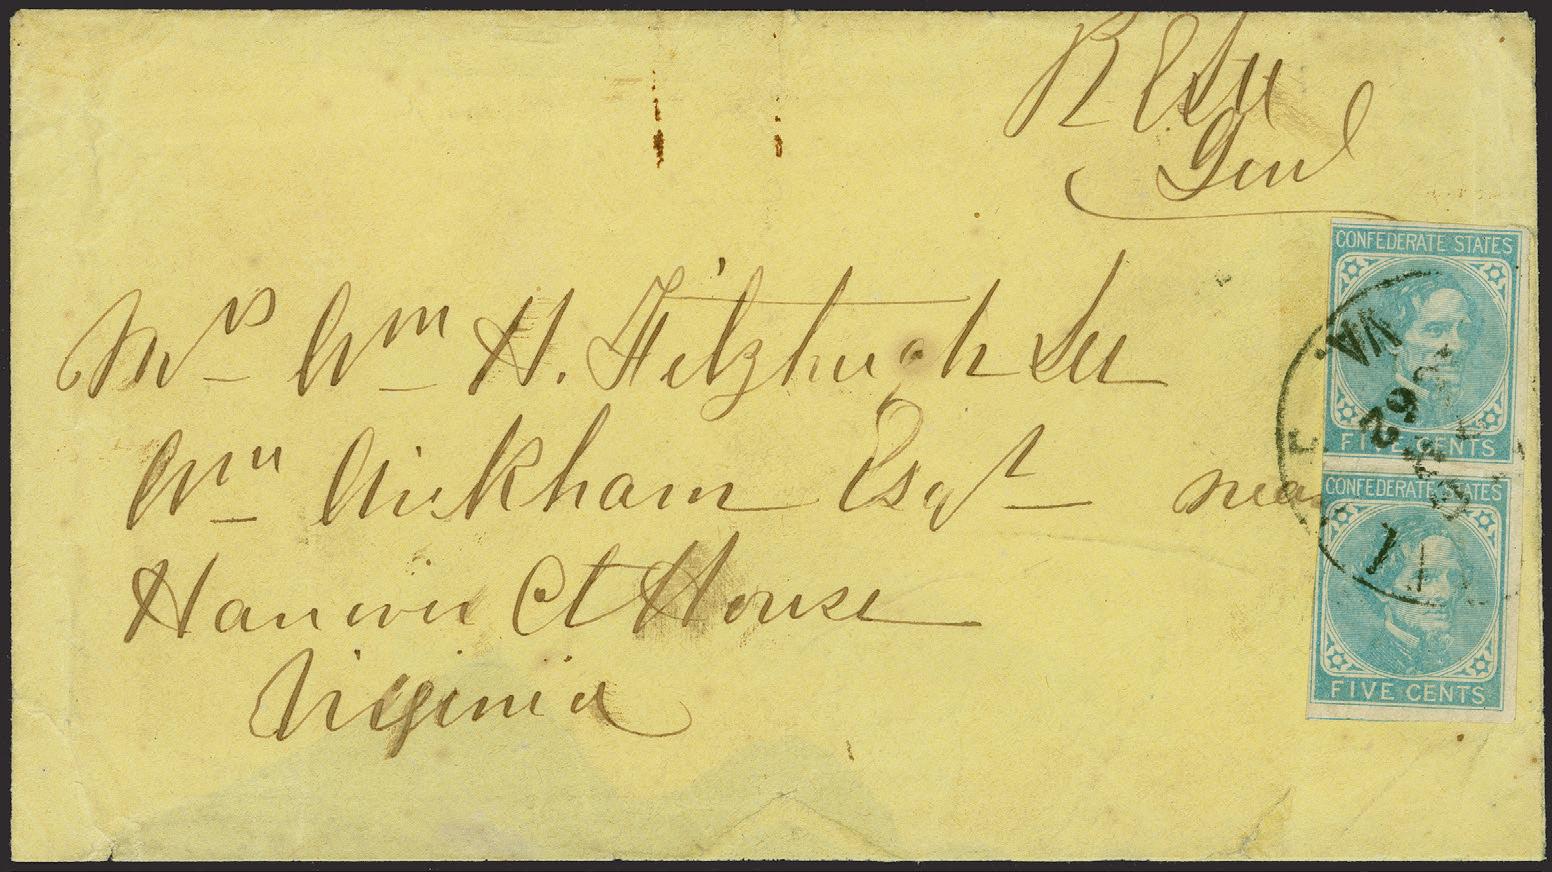 R E Lee
Genl
Mrs Wm H. Fitzhugh Lee
Wm Wickham Esqr near
Hanover Ct House
Virginia
CONFEDERATE STATES
FIVE CENTS
CONFEDERATE STATES
FIVE CENTS
VA.